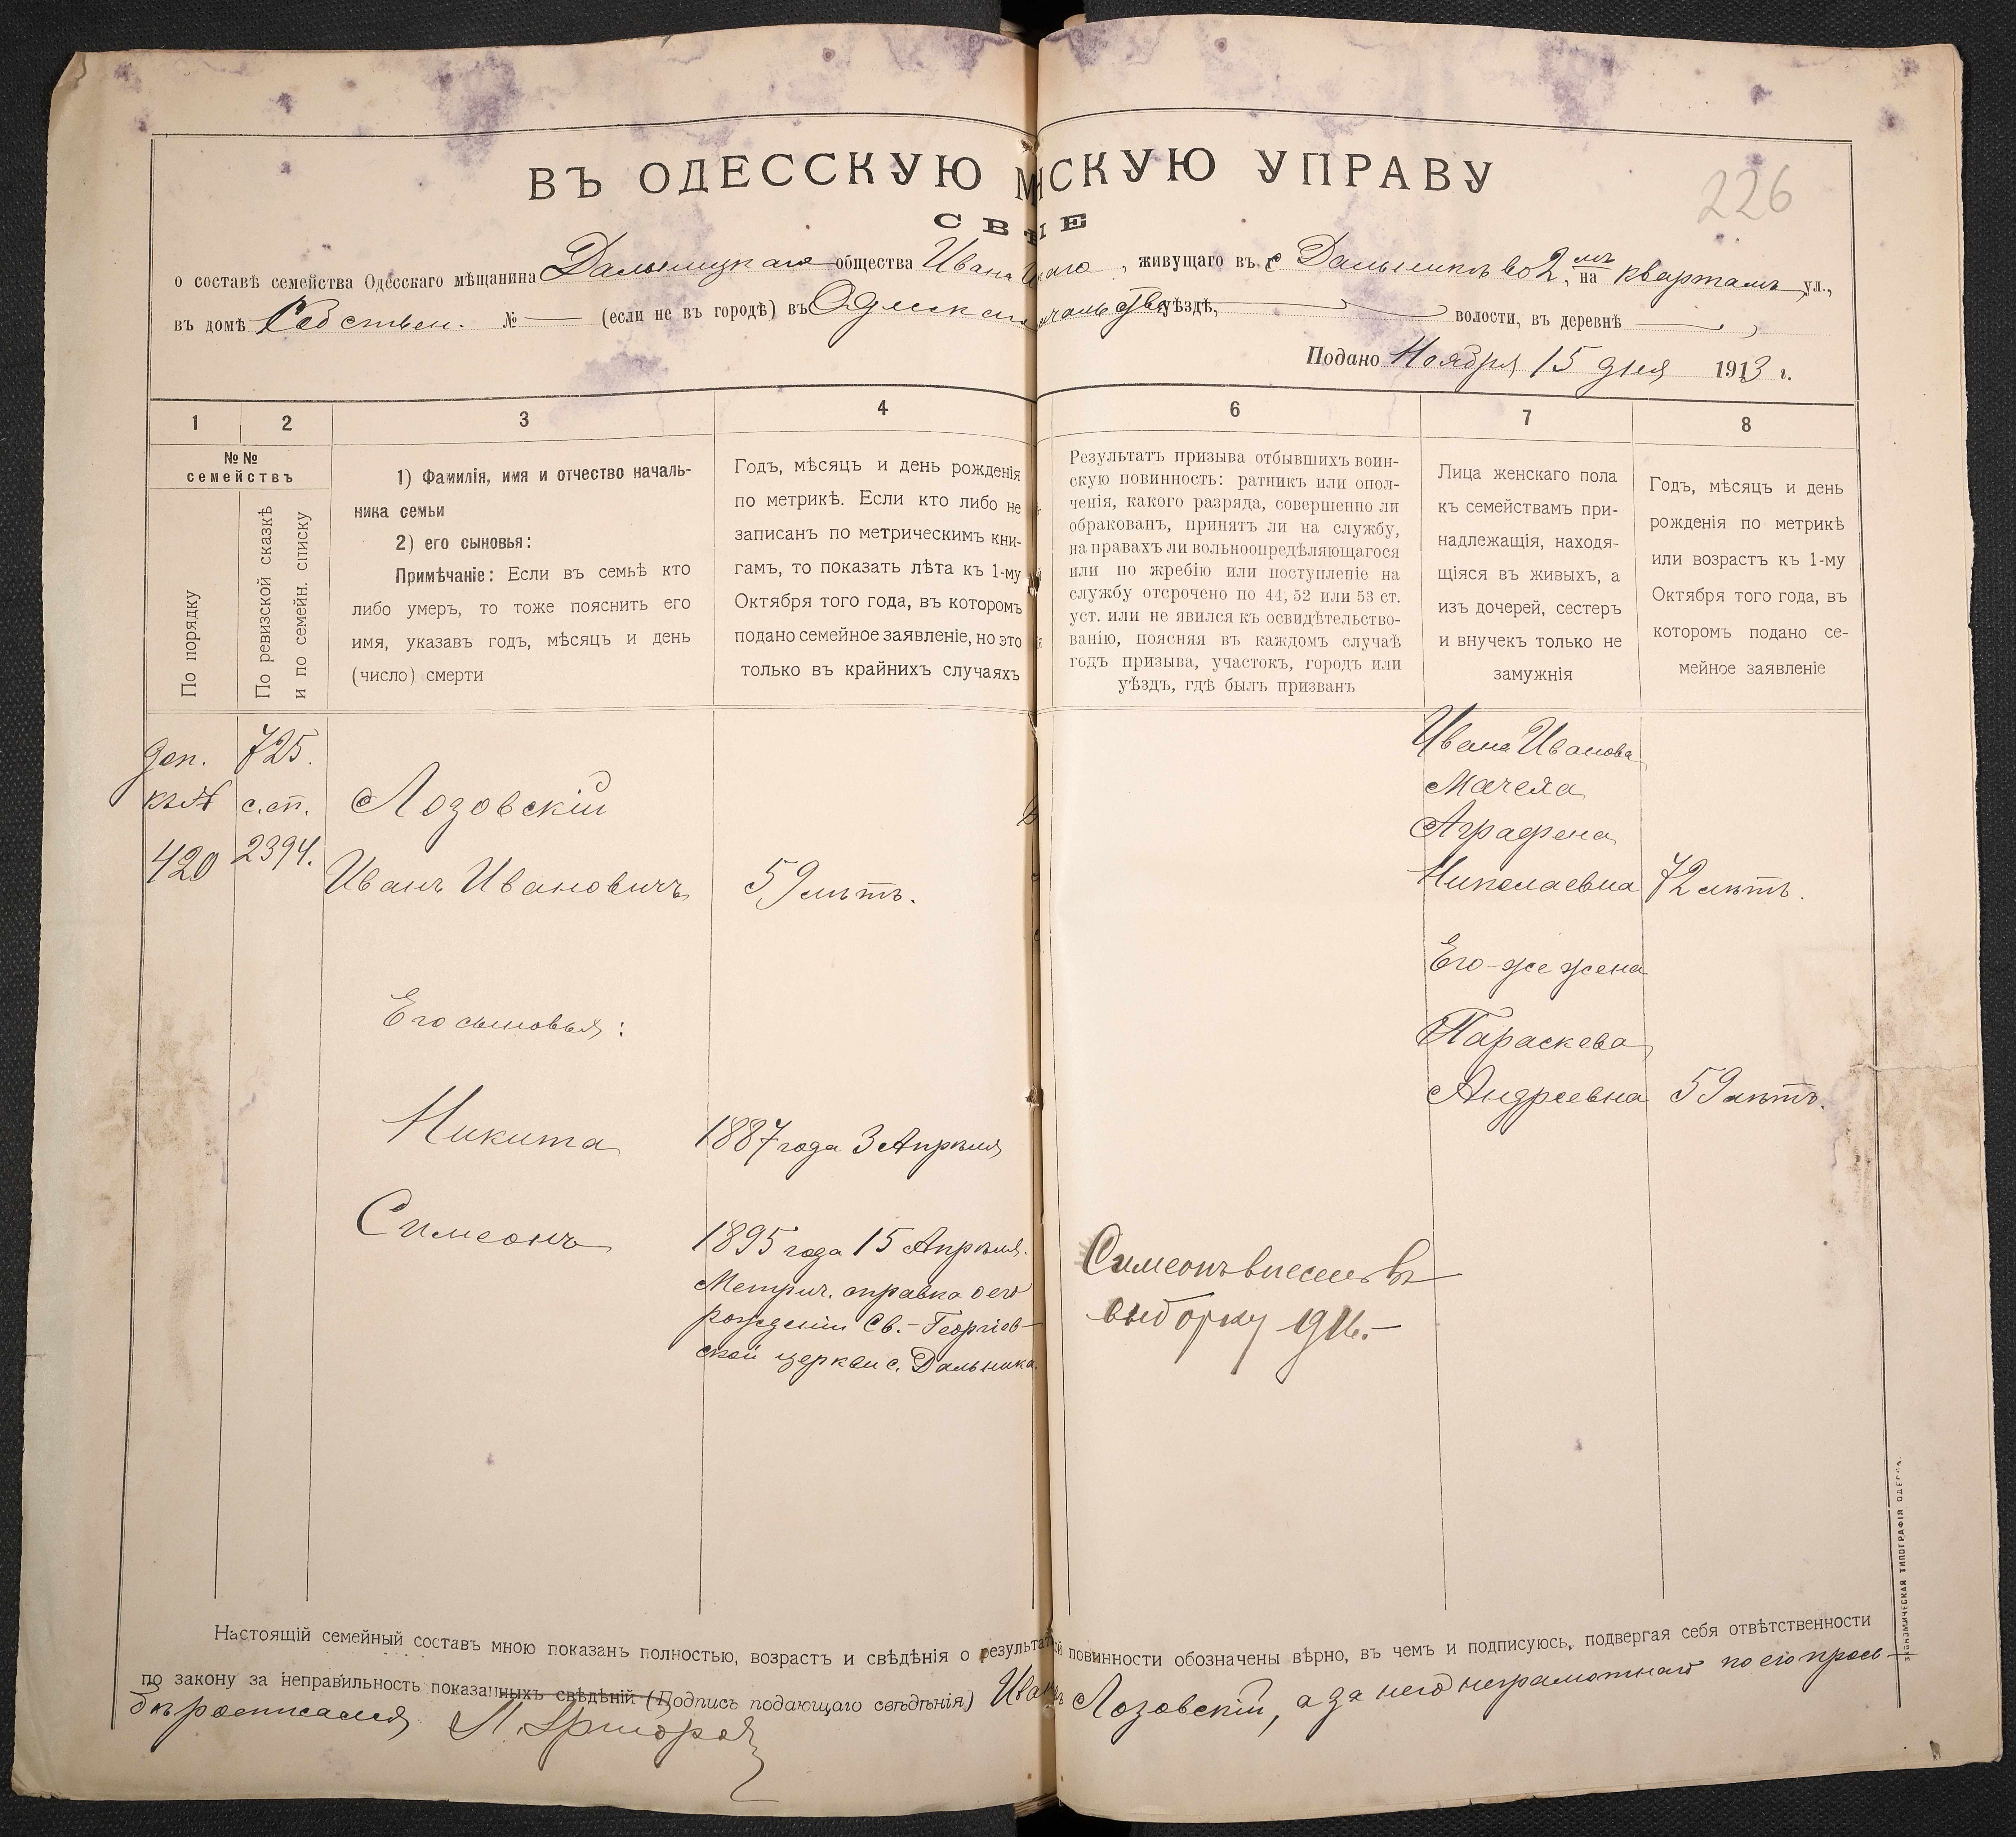 226
ВЪ ОДЕССКУЮ М СКУЮ УПРАВУ
СВ ІЕ
о составѣ семейства Одесскаго мѣщанина Дальницкаго общества Ивана , живущаго въ с Дальникъ во 2мъ на кварталѣ ул.,
въ домѣ Собствен. № — (если не въ городѣ) въ Одесск уѣздѣ, — волости, въ деревнѣ —,
Подано Ноября 15 дня 1913 г.
1 2 3 4 6 7 8
№№
семействъ
По порядку
По ревизской сказкѣ
и по семейн. списку
1) Фамилія, имя и отчество началь-
ника семьи
2) его сыновья:
Примѣчаніе: Если въ семьѣ кто
либо умеръ, то тоже пояснить его
имя, указавъ годъ, мѣсяцъ и день
(число) смерти
Годъ, мѣсяцъ и день рожденія
по метрикѣ. Если кто либо не
записанъ по метрическимъ кни-
гамъ, то показать лѣта къ 1-му
Октября того года, въ которомъ
подано семейное заявленіе, но это
только въ крайнихъ случаяхъ
Результатъ призыва отбывшихъ воин-
скую повинность: ратникъ или опол-
ченія, какого разряда, совершенно ли
обракованъ, принятъ ли на службу,
на правахъ ли вольноопредѣляющагося
или по жребію или поступленіе на
службу отсрочено по 44, 52 или 53 ст.
уст. или не явился къ освидѣтельство-
ванію, поясняя въ каждомъ случаѣ
годъ призыва, участокъ, городъ или
уѣздъ, гдѣ былъ призванъ
Лица женскаго пола
къ семействамъ при-
надлежащія, находя-
щіяся въ живыхъ, а
изъ дочерей, сестеръ
и внучекъ только не
замужнія
Годъ, мѣсяцъ и день
рожденія по метрикѣ
или возрастъ къ 1-му
Октября того года, въ
которомъ подано се-
мейное заявленіе
доп.
къ №
420
725.
с.сп.
2394.
Лозовскій
Иванъ Ивановичъ 59 лѣтъ.
Его сыновья:
Никита 1887 года 3 Апрѣля
Симеонъ 1895 года 15 Апрѣля.
Метрич. справка о его
рожденіи Св.-Георгіев-
ской церкви с. Дальника.
Симеонъ внесенъ въ
выборку 1916.-
Ивана Иванова
Мачеха
Аграфена
Николаевна 72 лѣтъ.
Его-же жена
Параскева
Андреевна 59 лѣтъ.
Настоящій семейный составъ мною показанъ полностью, возрастъ и свѣдѣнія о результат й повинности обозначены вѣрно, въ чемъ и подписуюсь, подвергая себя отвѣтственности
по закону за неправильность показанныхъ свѣдѣній (Подпись подающаго свѣдѣнія) Иванъ Лозовскій, а за него неграмотнаго по его прось-
бѣ росписался
ЭКОНОМИЧЕСКАЯ ТИПОГРАФІЯ ОДЕССА.